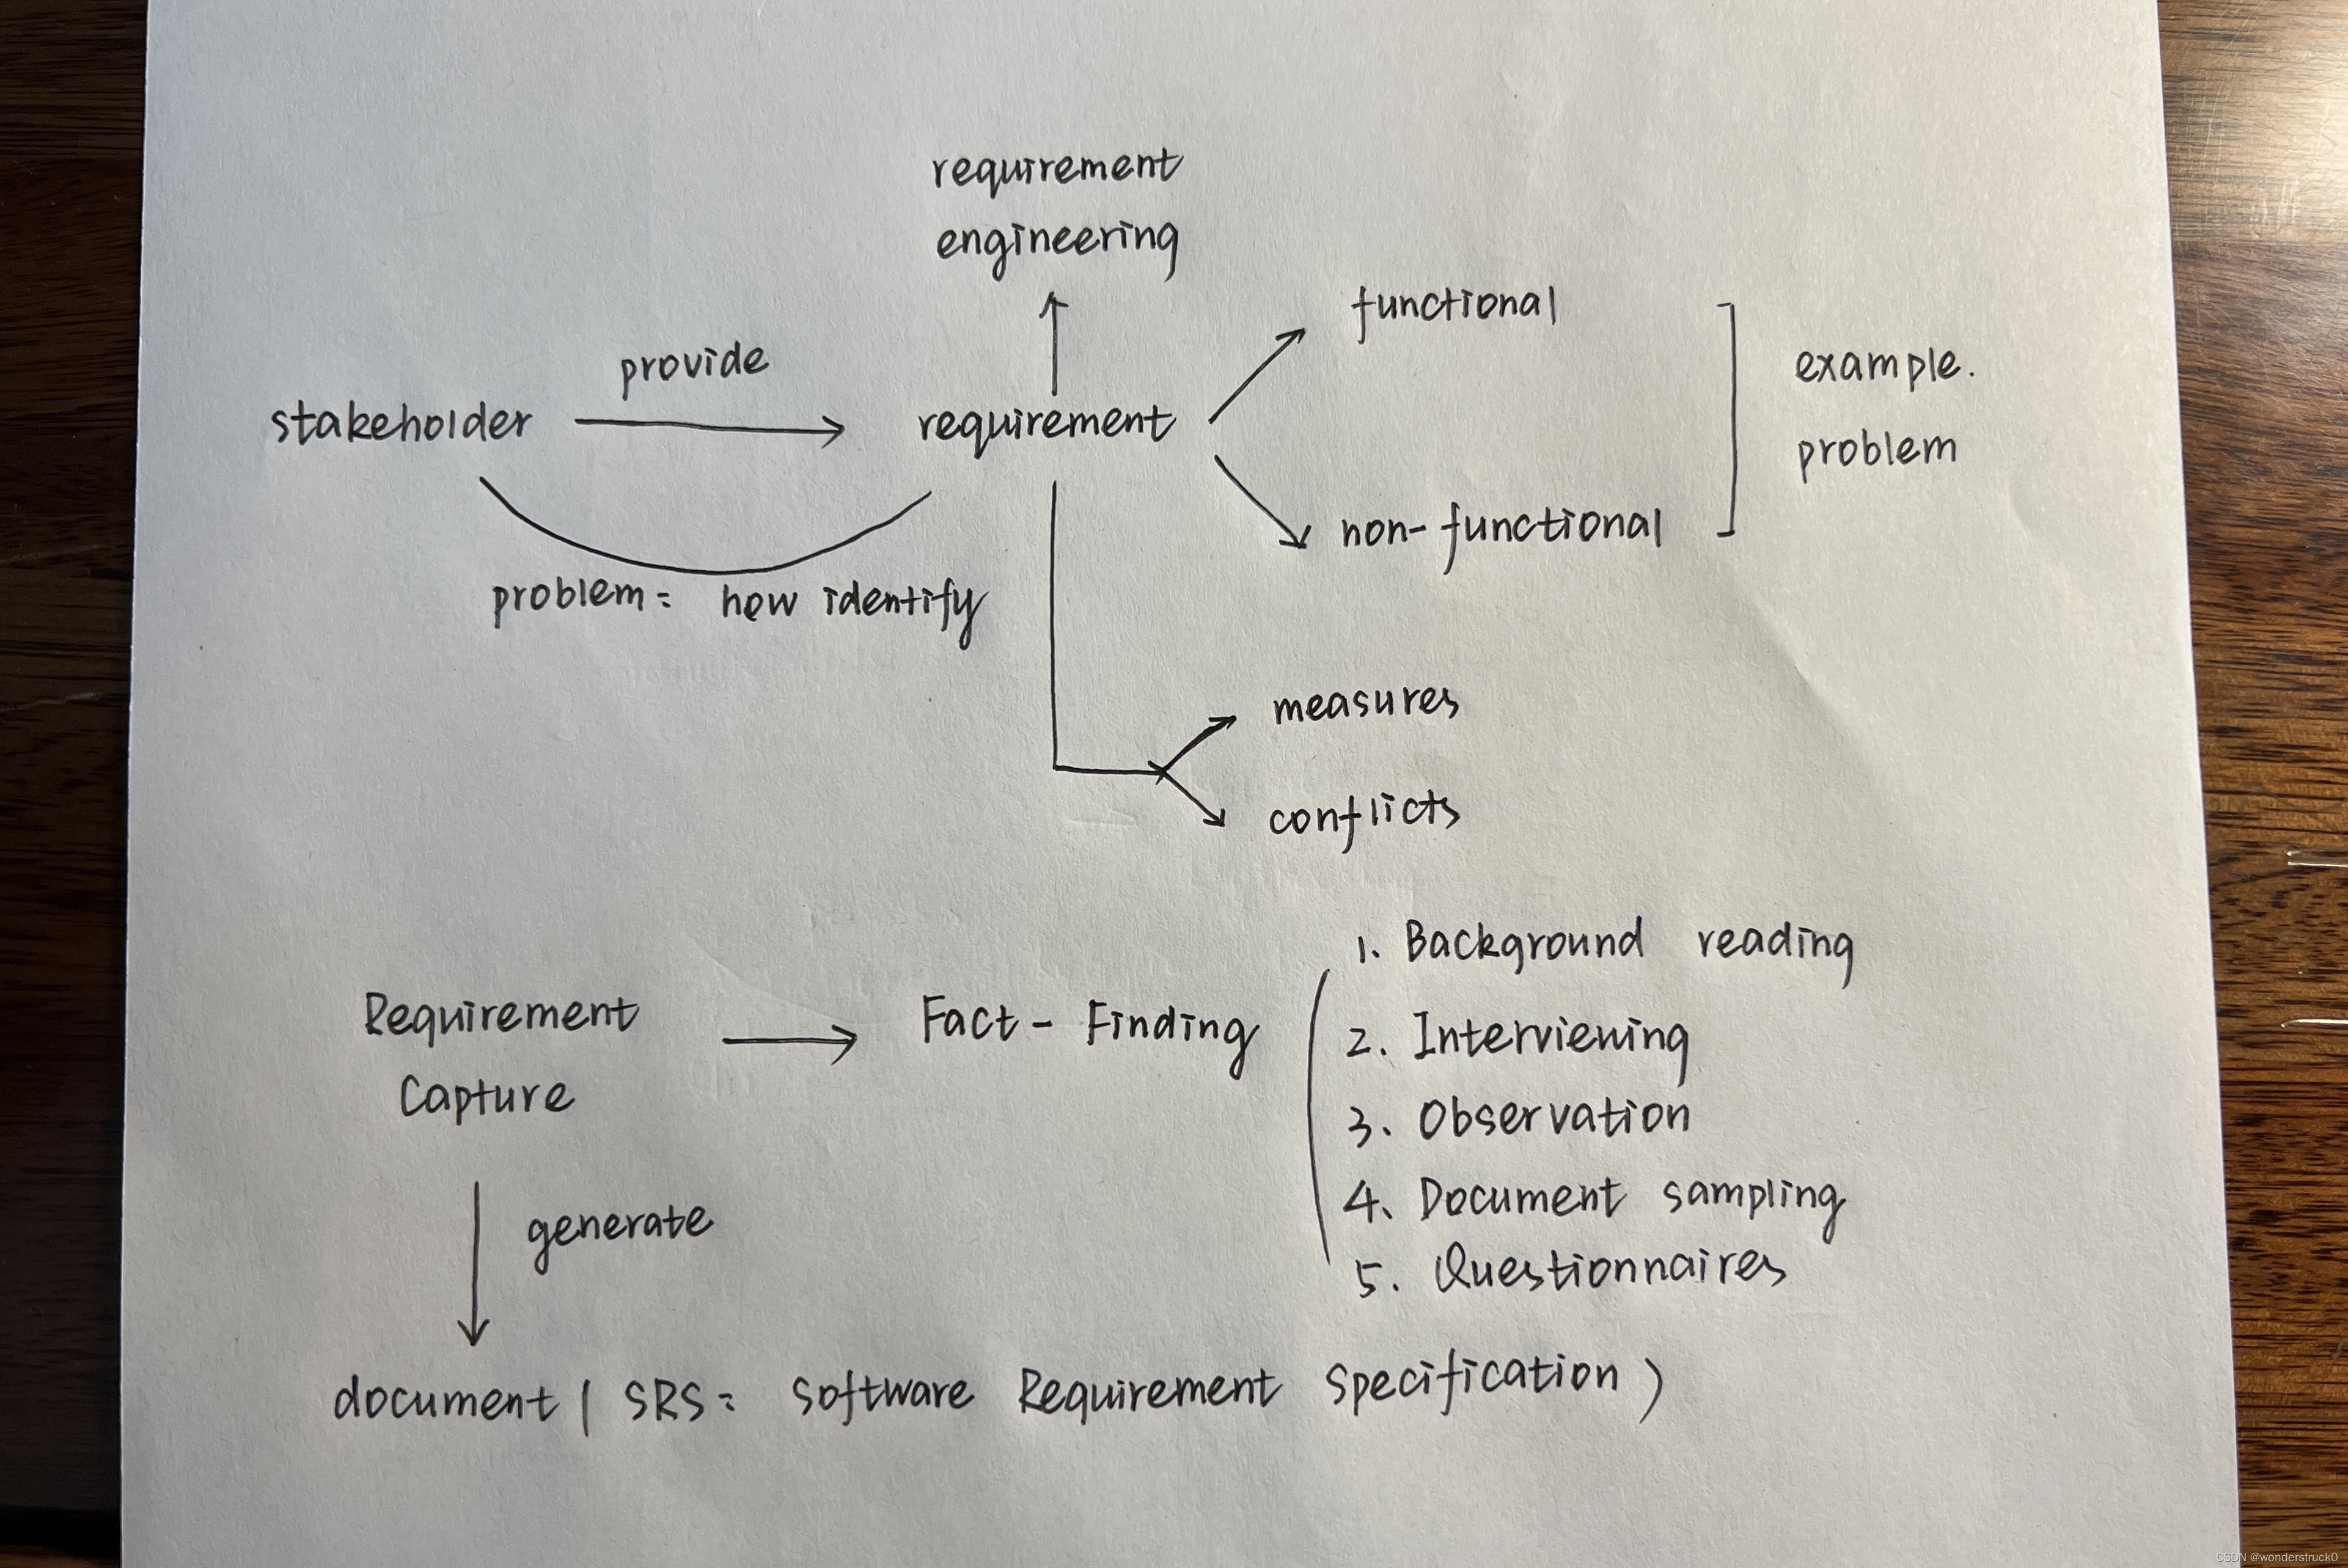 requirement
engineering
functional
provide
example.
stakeholder
requirement
problem
non-functional
problem: how identify
measures
conflicts
1. Background reading
Requirement
Fact - Finding
2. Interviewing
Capture
3. Observation
4. Document sampling
generate
5. Questionnaires
document ( SRS: Software Requirement Specification )
CSDN @wonderstruck0